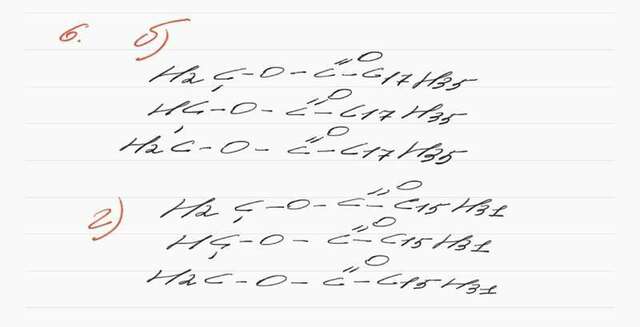 6. б)
H2C-O-C=O-C17H35
HC-O-C=O-C17H35
H2C-O-C=O-C17H35
г)
H2C-O-C=O-C15H31
HC-O-C=O-C15H31
H2C-O-C=O-C15H31